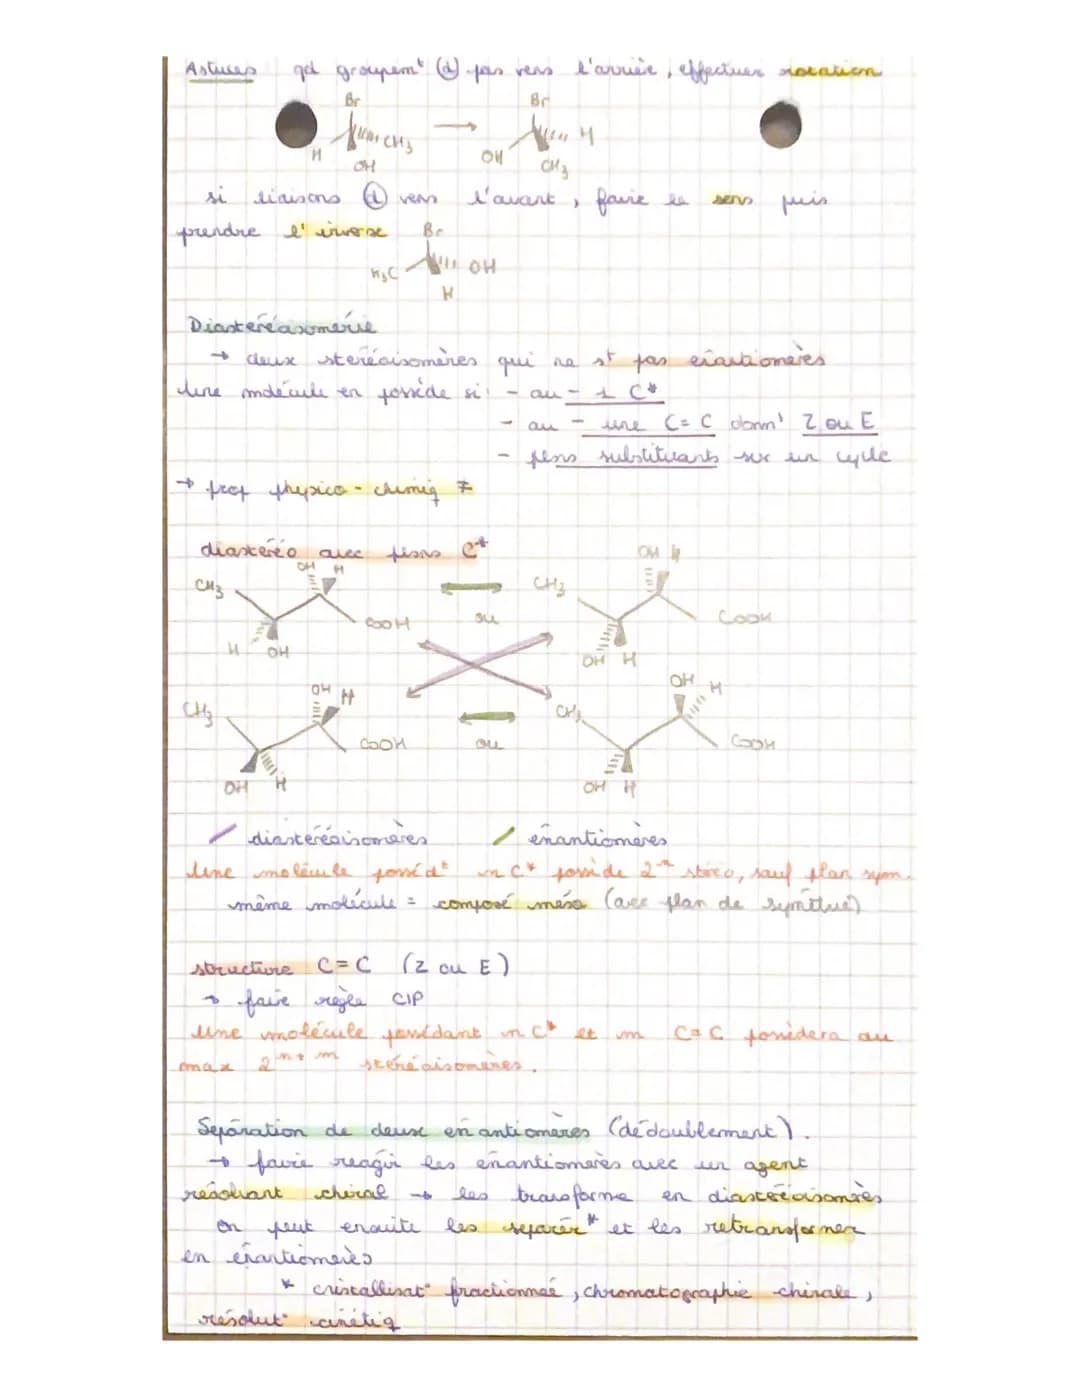 Astuces qd groupem^t (d) pas vers l'arrière, effectuer rotation
Br
Br
CH3
H
OH
OH
H
CH3
si liaisons (d) vers l'avant, faire le sens puis
prendre l'inverse
Br
H3C
OH
H
Diastéréoisomérie
→ deux stéréoisomères qui ne st pas énantiomères
Une molécule en possède si: - au - 1 C*
- au - une C=C donn^t Z ou E
- plsrs substituants sur un cycle
→ prop physico-chimiq ≠
diastéréo avec plsrs C*
OH H
CH3
COOH
H OH
ou
OH H
CH3
COOH
OH H
OH H
CH3
COOH
OH H
ou
OH H
CH3
COOH
OH H
/ diastéréoisomères / énantiomères
Une molécule posséd^t n C* possède 2^n stéréo, sauf plan sym.
même molécule = composé méso (avec plan de symétrie)
structure C=C (Z ou E)
→ faire règle CIP
Une molécule possédant n C* et m C=C possédera au
max 2^n+m stéréoisomères.
Séparation de deux énantiomères (dédoublement).
→ faire réagir les énantiomères avec un agent
résolvant chiral → les transforme en diastéréoisomères
on peut ensuite les séparer* et les retransformer
en énantiomères
* cristallisat° fractionnée, chromatographie chirale,
résolut° cinétiq